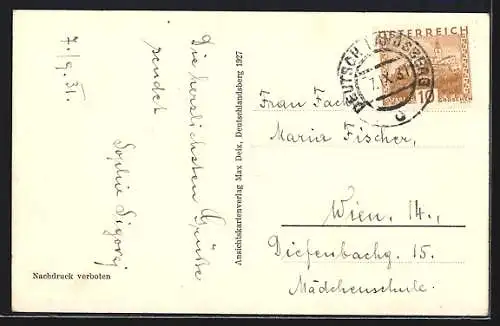 7./9. 31.
Die herzlichsten Grüße
sendet
Sophie
Nachdruck verboten
Ansichtskartenverlag Max Deix, Deutschlandsberg 1927
ÖSTERREICH
10 GROSCHEN
DEUTSCH LANDSBERG
7. IX. 31
c
Frau
Maria Fischer,
Wien, 14.,
Diefenbachg. 15.
Mädchenschule.